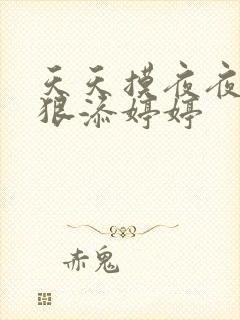 天天摸夜夜
狠添婷婷
赤鬼